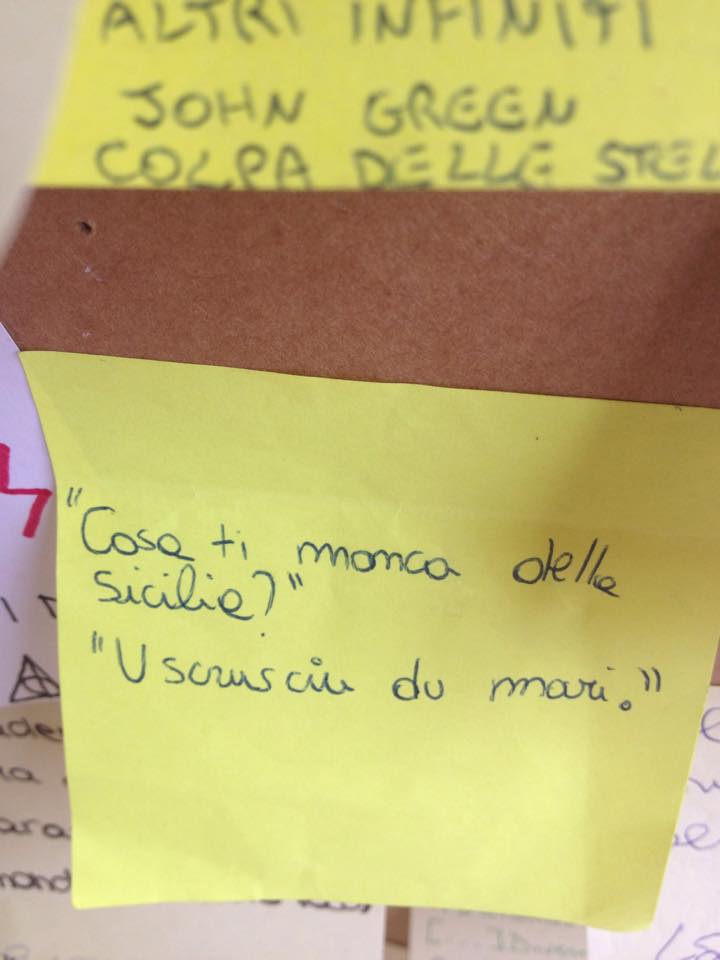 ALTRI INFINITI
JOHN GREEN
COLPA DELLE STEL
"Cosa ti manca della
Sicilia?"
"U scrusciu du mari."